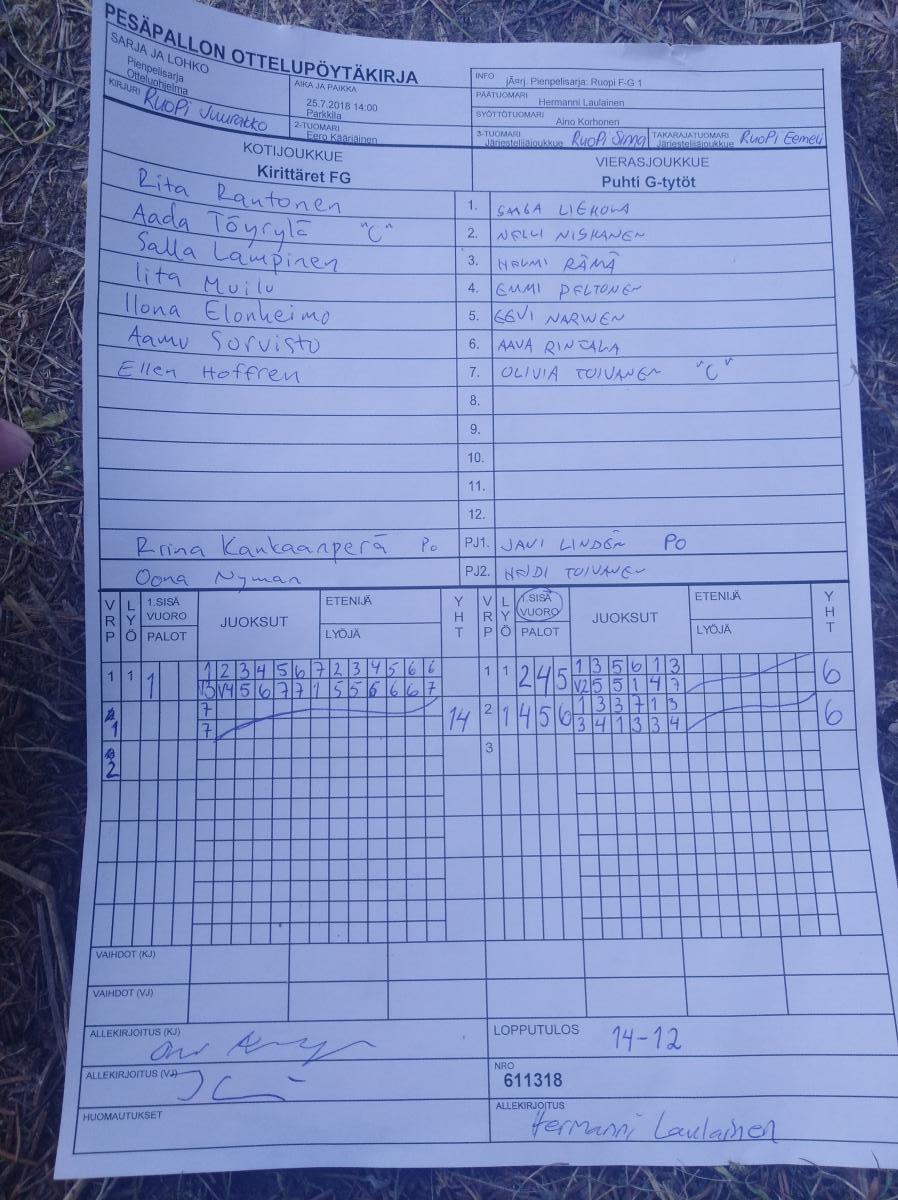 PESÄPALLON OTTELUPÖYTÄKIRJA
SARJA JA LOHKO
Pienpelisarja
Otteluohjelma
KIRJURI RuoPi Juuratko
AIKA JA PAIKKA
25.7.2018 14:00
Parkkila
2-TUOMARI
Eero Kääriäinen
INFO
jÄ¤rj. Pienpelisarja: Ruopi F-G 1
PÄÄTUOMARI
Hermanni Laulainen
SYÖTTÖTUOMARI
Aino Korhonen
3-TUOMARI
Järjestelijäjoukkue RuoPi Sinna
TAKARAJATUOMARI
Järjestelijäjoukkue RuoPi Eemeli
KOTIJOUKKUE
Kirittäret FG
VIERASJOUKKUE
Puhti G-tytöt
Rita Rantonen 1. SAGA LIEHOLA
Aada Töyrylä "C" 2. NELLI NISKANEN
Salla Lampinen 3. HELMI RÄMÄ
Iita Muilu 4. EMMI PELTONEN
Ilona Elonheimo 5. EEVI NARWEN
Aamu Sorvisto 6. AAVA RINTALA
Ellen Hoffren 7. OLIVIA TOIVANEN "C"
8.
9.
10.
11.
12.
Riina Kankaanperä Po PJ1. JANI LINDÉN PO
Oona Nyman PJ2. HEIDI TOIVANEN
VRP LYÖ 1.SISÄ VUORO PALOT JUOKSUT ETENIJÄ LYÖJÄ YHT VRP LYÖ 1.SISÄ VUORO PALOT JUOKSUT ETENIJÄ LYÖJÄ YHT
1 1 1 1 2 3 4 5 6 7 2 3 4 5 6 6 1 1 2 4 5 1 3 5 6 1 3 6
V3 V4 5 6 7 7 1 5 5 6 6 6 7 V2 5 5 1 4 7
1 7 14 2 1 4 5 6 1 3 3 7 1 3 6
7 3 4 1 3 3 4
2 3
VAIHDOT (KJ)
VAIHDOT (VJ)
ALLEKIRJOITUS (KJ)
LOPPUTULOS 14-12
ALLEKIRJOITUS (VJ)
NRO
611318
HUOMAUTUKSET
ALLEKIRJOITUS
Hermanni Laulainen